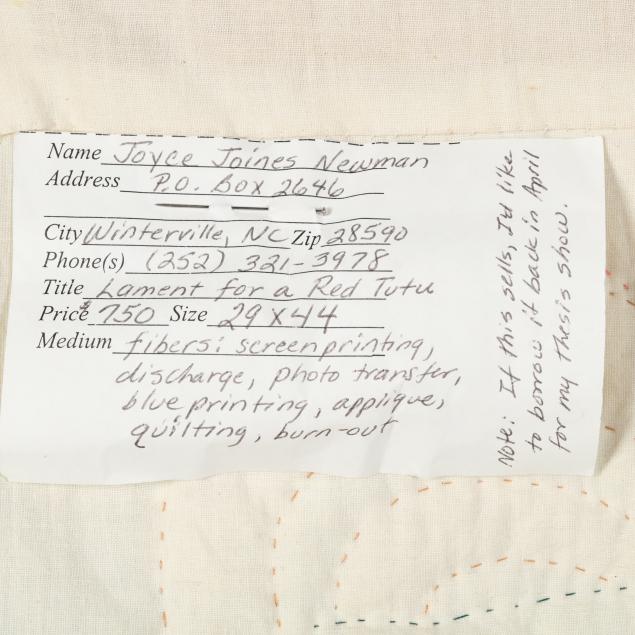 Name Joyce Joines Newman
Address P.O. Box 2646
City Winterville, NC Zip 28590
Phone(s) (252) 321-3978
Title Lament for a Red Tutu
Price $750 Size 29 x 44
Medium fibers: screenprinting,
discharge, photo transfer,
blue printing, applique,
quilting, burn-out
Note: If this sells, I'd like
to borrow it back in April
for my thesis show.